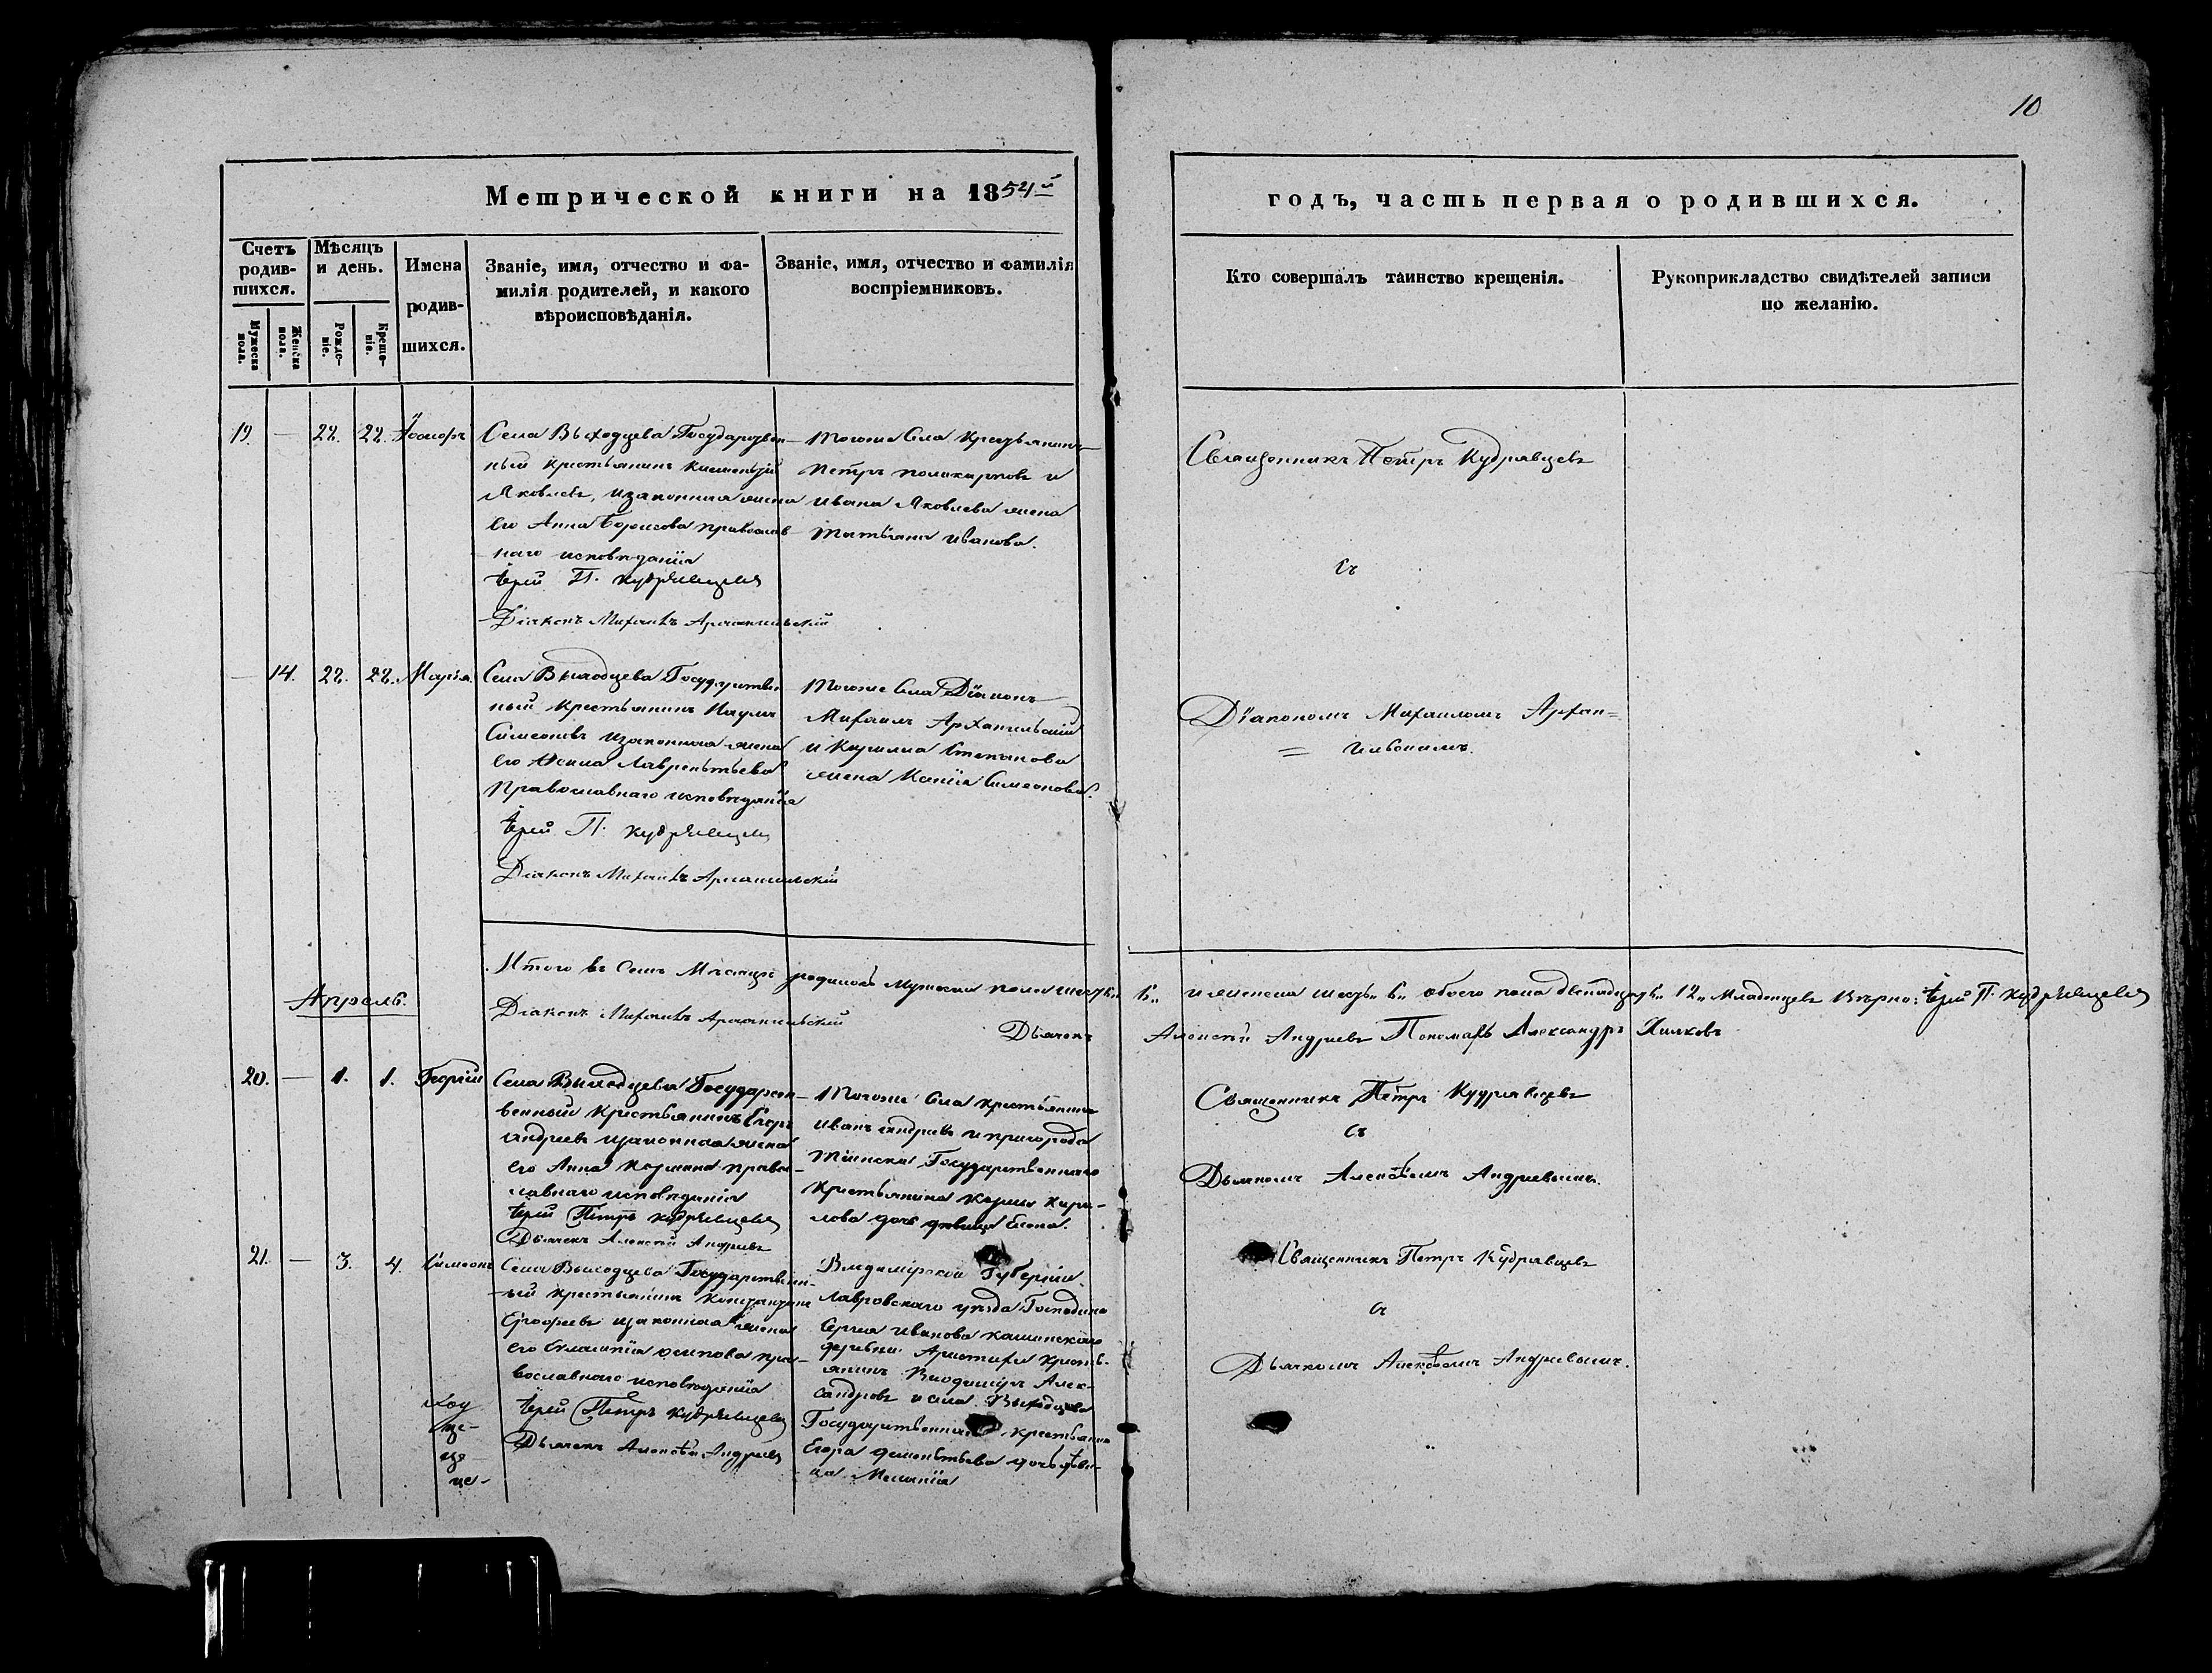 10
Метрической книги на 1854й
годъ, часть первая о родившихся.
Счетъ родив-шихся.
Мѣсяцъ и день.
Имена
родив-
шихся.
Званіе, имя, отчество и фа-
милія родителей, и какого
вѣроисповѣданія.
Званіе, имя, отчество и фамилія
воспріемниковъ.
Кто совершалъ таинство крещенія.
Рукоприкладство свидѣтелей записи
по желанію.
Мужеска пола.
Женска пола.
Рожде-ніе.
Креще-ніе.
19.
—
22.
22.
Села Выходцева Государствен-
ный крестьянинъ
Яковлевъ, и законная жена
его Анна Борисова православ-
наго исповѣданія
Іерей П. Кудрявцевъ
Діаконъ Михаилъ Архангельский
Тогоже Села Крестьянинъ
Петръ Поликарповъ и
Ивана Яковлева жена
Татьяна Иванова.
Священникъ Петръ Кудрявцевъ
съ
—
14.
22.
22.
Марія.
Села Выходцева Государствен
ный крестьянинъ Наумъ
Симеоновъ и законная жена
его Лаврентьева
Православнаго исповѣданія
Іерей П. Кудрявцевъ
Діаконъ Михаилъ Архангельский
Тогоже Села Діаконъ
Михаилъ Архангельский
и Кирила Степанова
жена Симеонова.
Діакономъ Михаиломъ Архан=
= гельскимъ.
Итого въ семъ Мѣсяце родилось Мужеска пола шесть 6 и женска шесть 6 обоего пола двенадцать 12 Младенцевъ Вѣрно: Іерей П. Кудрявцевъ
Діаконъ Михаилъ Архангельский Дьячекъ Алексѣй Андреевъ Пономарь Александръ
Апрель.
20.
—
1.
1.
Георгій
Села Выходцева Государст-
венный Крестьянинъ Егоръ
Андреевъ и законная жена
его Анна Козмина право-
славнаго исповѣданія
Іерей Петръ Кудрявцевъ
Дьячекъ Алексѣй Андреевъ
Тогоже Села Крестьянинъ
Иванъ Андреевъ и пригорода
Тіинска Государственнаго
Крестьянина Козмы Кири-
лова дочь девица Елена.
Священникъ Петръ Кудрявцевъ
съ
Дьячкомъ Алексѣемъ Андреевымъ.
21.
—
3.
4.
Симеонъ
Села Выходцева Государствен-
ный крестьянинъ Константинъ
Ерофеевъ и законная жена
его Осипова пра-
вославнаго исповѣданія
Іерей Петръ Кудрявцевъ
Дьячекъ Алексѣй Андреевъ
Владимірской Губерніи
уѣзда Господина
Сергея Иванова
деревни крестьянинъ Владиміръ Алек-
сандровъ и села Выходцева
Государственнаго крестьянина
Егора дочь деви-
ца Меланія
Священникъ Петръ Кудрявцевъ
съ
Дьячкомъ Алексѣемъ Андреевымъ.